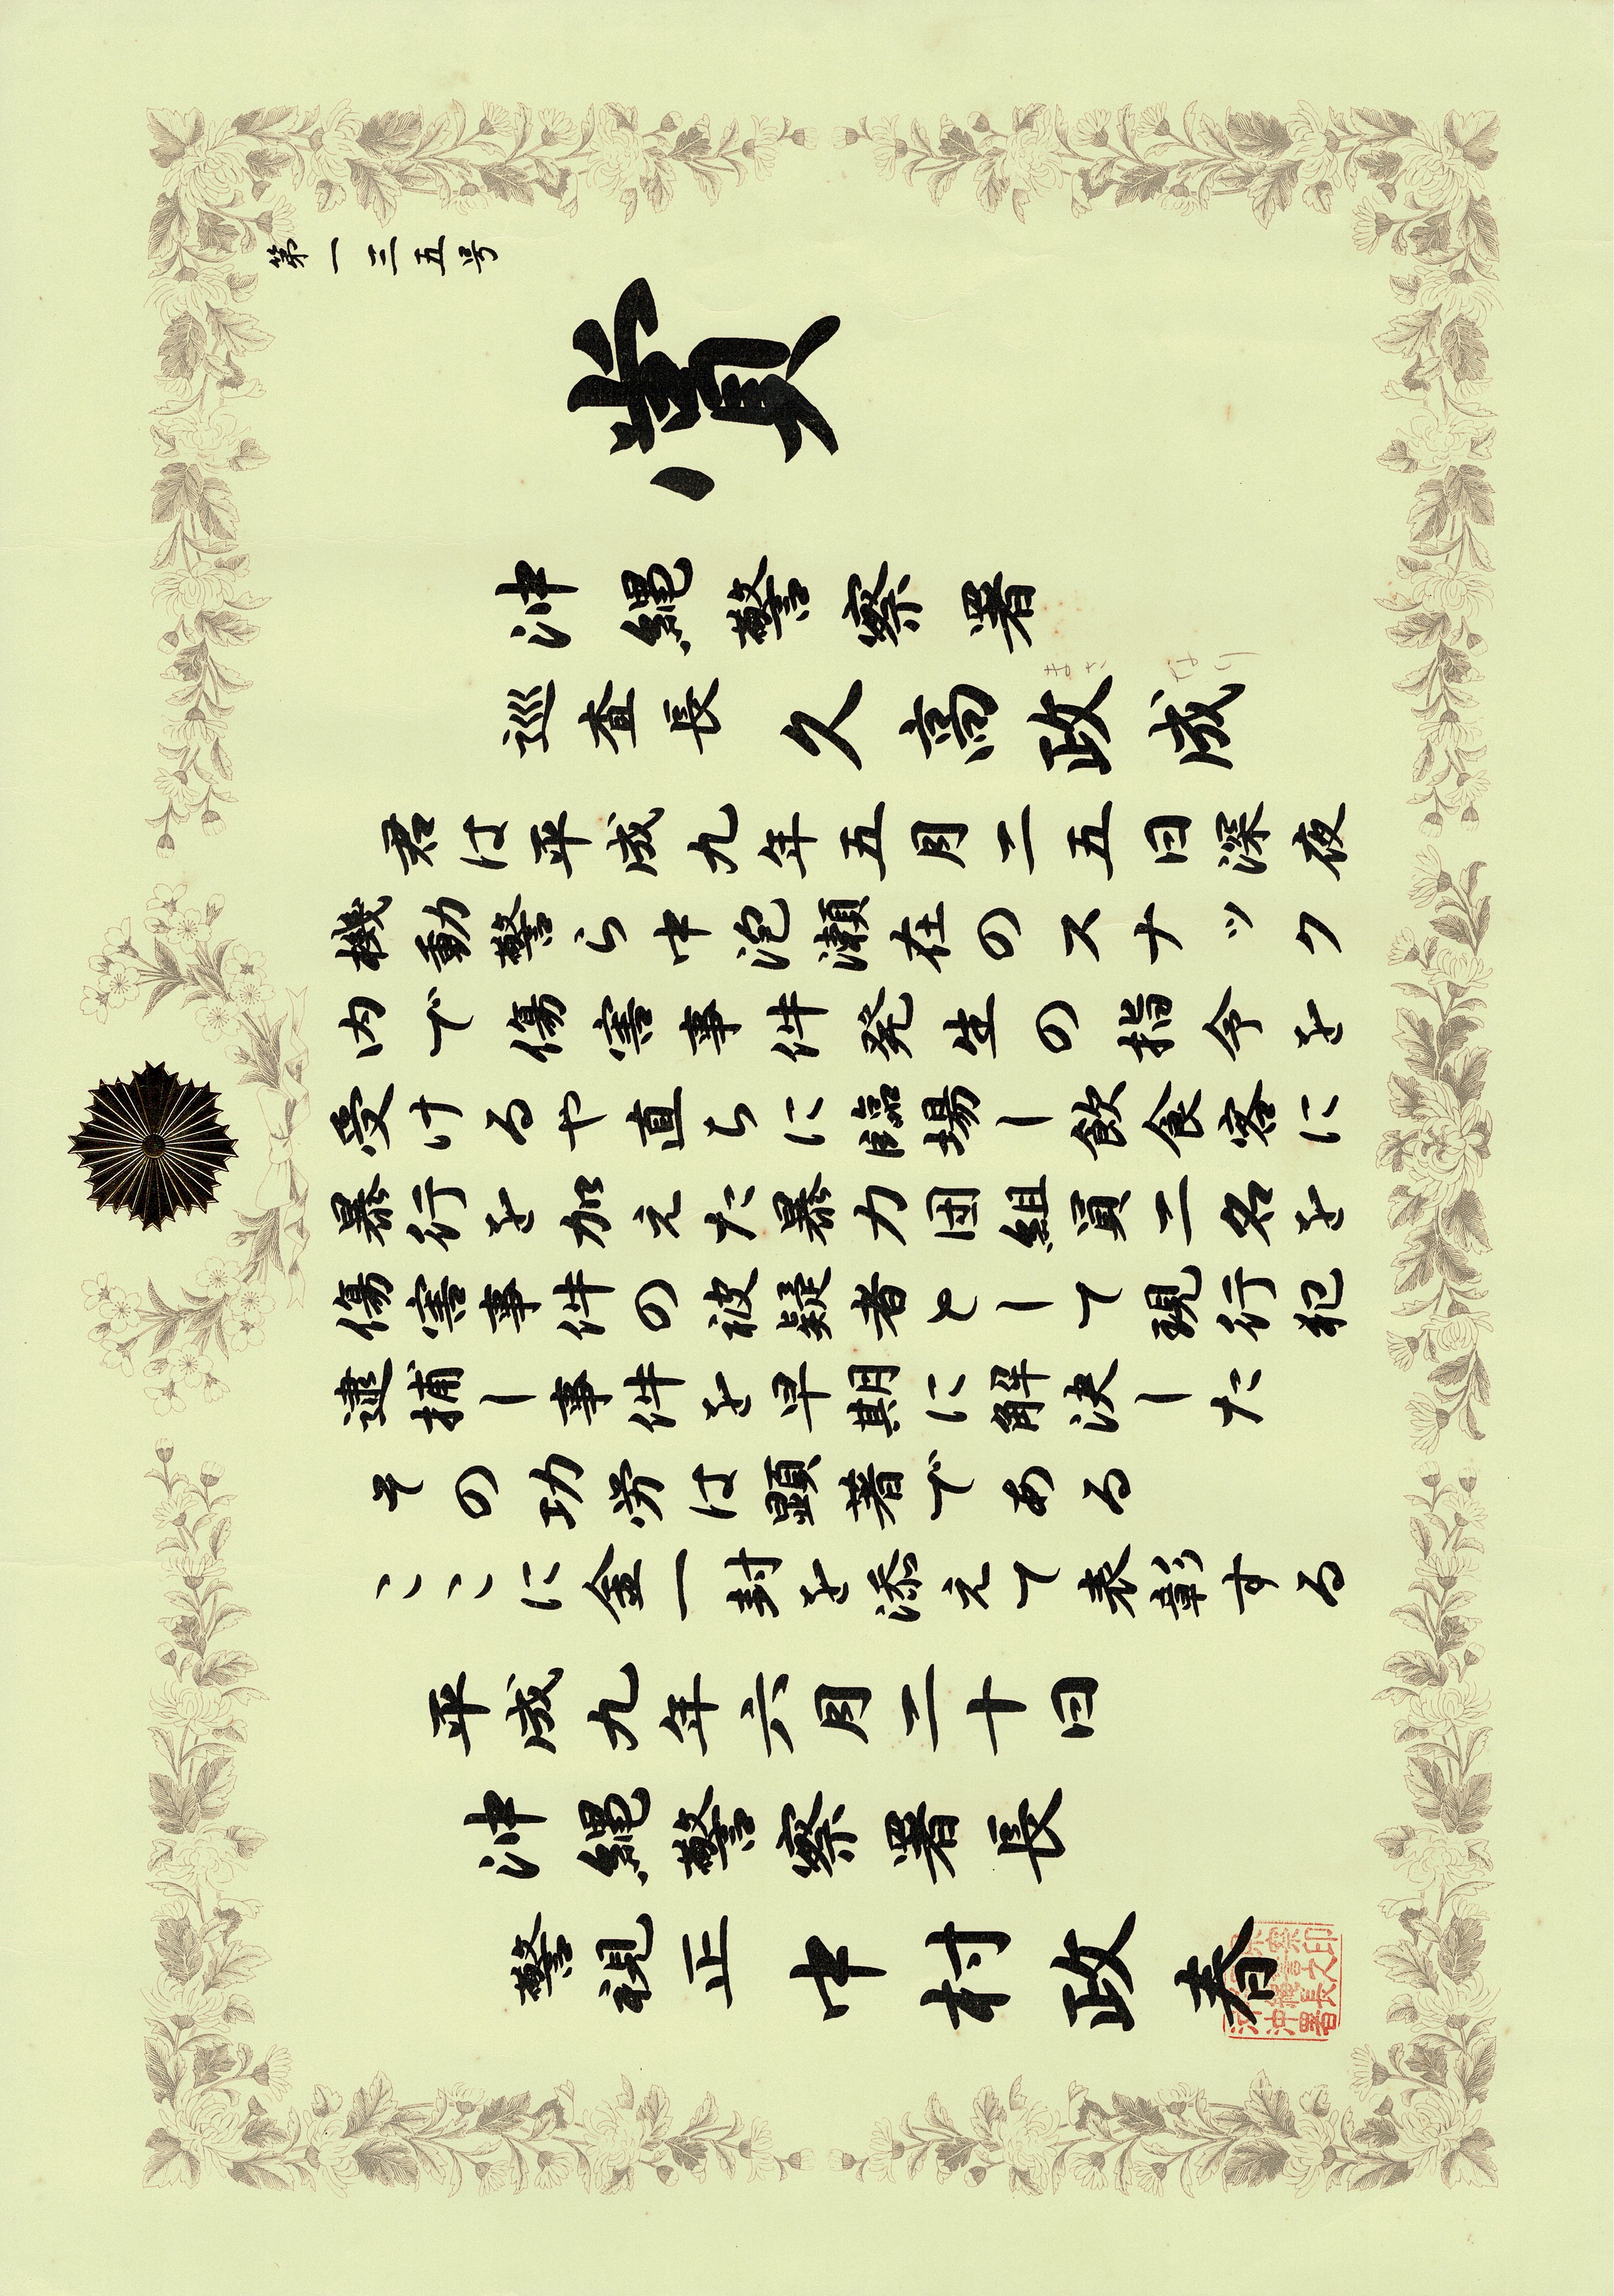 第一三五号
賞
沖縄警察署
巡査長 久高政成
君は平成九年五月二五日深夜
機動警ら中泡瀬在のスナック
内で傷害事件発生の指令を
受けるや直ちに臨場し飲食客に
暴行を加えた暴力団組員二名を
傷害事件の被疑者として現行犯
逮捕し事件を早期に解決した
その功労は顕著である
ここに金一封を添えて表彰する
平成九年六月二十日
沖縄警察署長
警視正 中村政春